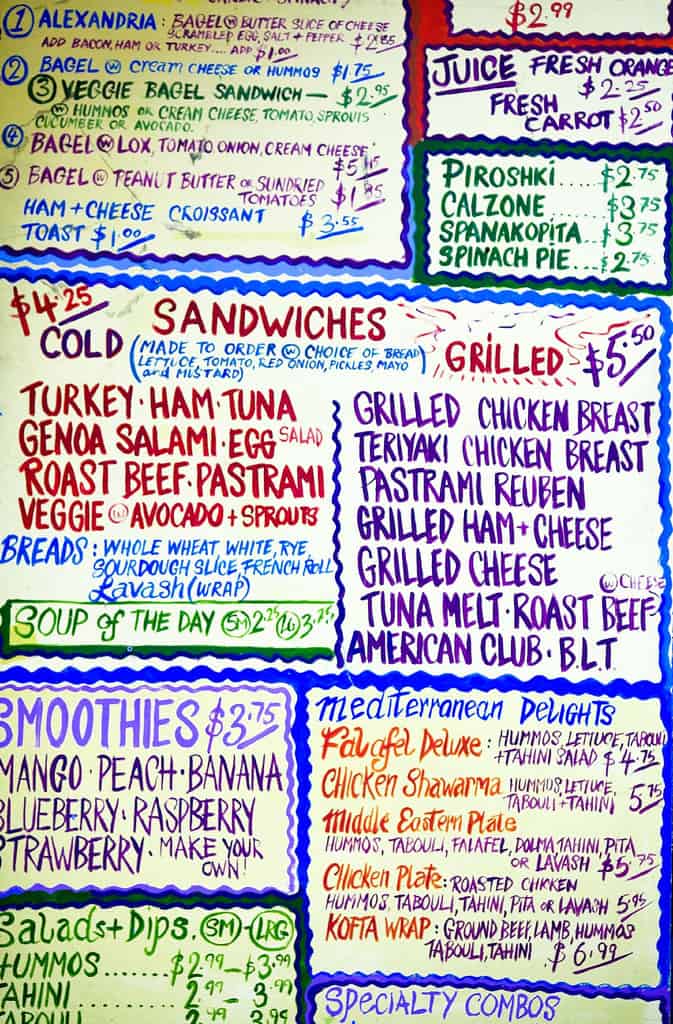 ① ALEXANDRIA: BAGEL ⓦ BUTTER SLICE OF CHEESE
SCRAMBLED EGG, SALT + PEPPER
ADD BACON, HAM OR TURKEY.... ADD $1.00
② BAGEL ⓦ CREAM CHEESE OR HUMMOS $1.75
③ VEGGIE BAGEL SANDWICH — $2.95
ⓦ HUMMOS OR CREAM CHEESE, TOMATO, SPROUTS
CUCUMBER OR AVOCADO.
④ BAGEL ⓦ LOX, TOMATO ONION, CREAM CHEESE
⑤ BAGEL ⓦ PEANUT BUTTER OR SUNDRIED
TOMATOES
HAM + CHEESE CROISSANT $3.55
TOAST $1.00
$2.99
JUICE FRESH ORANGE
$2.25
FRESH
CARROT $2.50
PIROSHKI..... $2.75
CALZONE ..... $3.75
SPANAKOPITA... $3.75
SPINACH PIE... $2.75
$4.25 SANDWICHES
COLD (MADE TO ORDER ⓦ CHOICE OF BREAD
LETTUCE, TOMATO, RED ONION, PICKLES, MAYO
and MUSTARD)
GRILLED $5.50
TURKEY · HAM · TUNA
GENOA SALAMI · EGG SALAD
ROAST BEEF · PASTRAMI
VEGGIE ⓦ AVOCADO + SPROUTS
BREADS: WHOLE WHEAT, WHITE, RYE,
SOURDOUGH SLICE, FRENCH ROLL
Lavash (WRAP)
SOUP of THE DAY SM 2.25 LG 3.25
GRILLED CHICKEN BREAST
TERIYAKI CHICKEN BREAST
PASTRAMI REUBEN
GRILLED HAM + CHEESE
GRILLED CHEESE
ⓦ CHEESE
TUNA MELT · ROAST BEEF
AMERICAN CLUB · B.L.T.
SMOOTHIES $3.75
MANGO · PEACH · BANANA
BLUEBERRY · RASPBERRY
STRAWBERRY · MAKE YOUR
OWN!
Salads + Dips. SM - LRG
HUMMOS ....... $2.99 - $3.99
TAHINI ......... 2.99 - 3.99
TABOULI 3.99
Mediterranean DELIGHTS
Falafel Deluxe: HUMMOS, LETTUCE, TABOULI
+ TAHINI SALAD $4.75
CHICKEN Shawarma HUMMUS, LETTUCE,
TABOULI + TAHINI 5.75
Middle Eastern Plate
HUMMOS, TABOULI, FALAFEL, DOLMA TAHINI, PITA
OR LAVASH $5.75
Chicken Plate: ROASTED CHICKEN
HUMMOS, TABOULI, TAHINI, PITA OR LAVASH 5.95
KOFTA WRAP: GROUND BEEF, LAMB, HUMMOS
TABOULI, TAHINI $6.99
SPECIALTY COMBOS